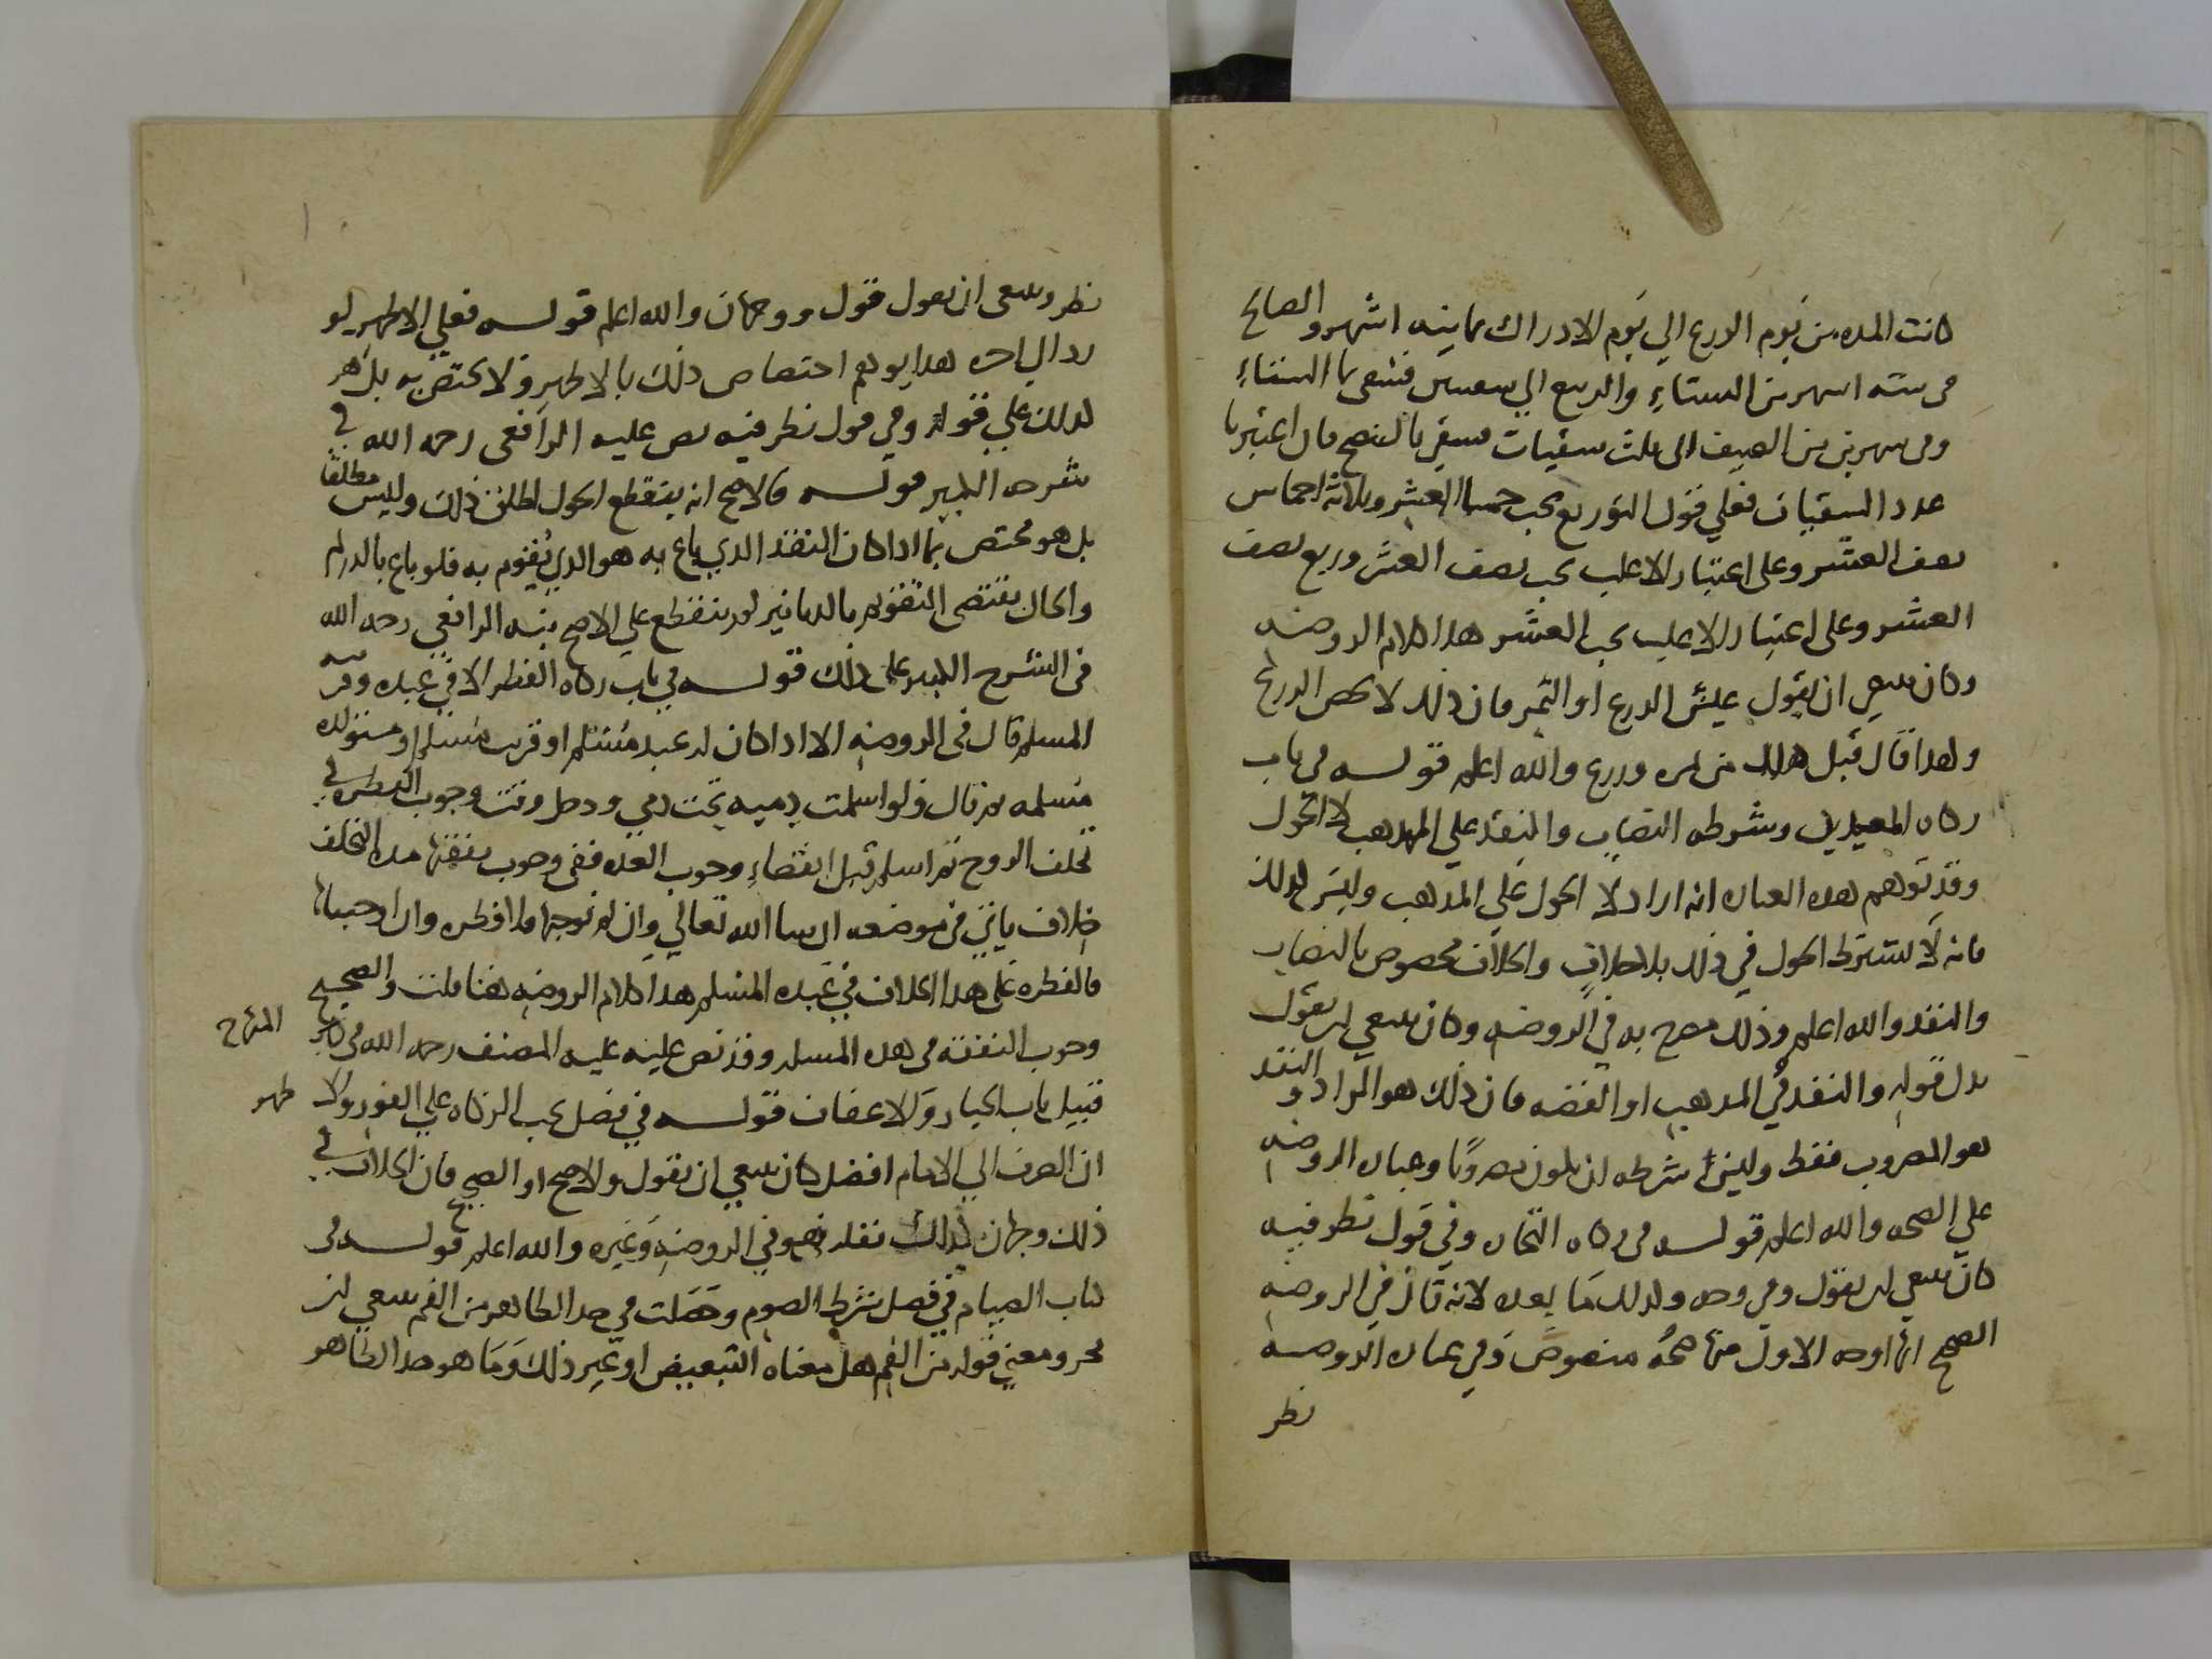 كانت المده من يوم الزرع الي يوم الادراك ثمانيه اشهر واحتاج
في سته اشهر من الشتاءِ والربيع الي سقيتين فسقي بماالسماءِ
وفي شهرين من الصيف الى ثلث سقيات فسقي بالنضح فان اعتبرنا
عدد السقيات فعلي قول التوزيع يجب خمسا العشر وثلاثة اخماس
نصف العشر وعلى اعتبار الاغلب يجب نصف العشر وربع نصف
العشر وعلى اعتبار الاغلب يجب العشر هذا كلام الروضه
وكان ينبغي ان يقول عيش الزرع او الثمر فان ذلك لا يخص الزرع
ولهذا قال قبل هذا من ثمره وزرع والله اعلم قولــه في باب
زكاه المعدن وشرطه النصاب والنقد علي المذهب لا الحول
وقد توهم هذه العباره انه اراد لا الحول علي المذهب وليس كذلك
فانه لا يشترط الحول في ذلك بلا خلاف والخلاف مخصوص بالنصاب
والنقد والله اعلم وذلك مصرح به في الروضه وكان ينبغي ان يقول
بدل قوله والنقد في المذهب او الفضه فان ذلك هو المراد و النقد
هو المضروب فقط وليس شرطه ان يكون مضروبًا وعباره الروضه
علي الصحه والله اعلم قولــه في زكاه التجاره وفي قول نظر فيه
كان ينبغي ان يقول وفي وجه وكذلك مَا بعده لانه قال في الروضه
الصحيح انها اوجه الاول منها صحه منصوص وفي عباره الروضه
نظر
نظر وينبغي ان يقول قول ووجهان والله اعلم قولــه فعلي الاظهر لو
رد الي اخره هذا يوهم اختصاص ذلك بالاظهر ولا يختص به بل هو
كذلك علي قوله وفي قول نظر فيه نص عليه الرافعى رحمه الله في
شرحه الكبير قولــه فالاصح انه ينقطع الحول اطلق ذلك وليس مطلقا
بل هو مختص بما اذا كان النقد الذي باع به هو الذي يُقوم به فلو باع بالدراهم
والحال يقتضى التقويم بالدنانير لم ينقطع علي الاصح نبه الرافعي رحمه الله
فى الشرح الكبير على ذلك قولــه في باب زكاه الفطر الا في عبده وقريبه
المسلم قال فى الروضه الا اذا كان له عبد مُسْلم او قريب مُسلم او مستولده
مُسلمه ثم قال ولو اسلمت ذميه تحت ذمي ودخل وقت وجوب الفطره في
تخلف الزوج ثم اسلم قبل انقضاءِ وجوب العده ففي وجوب نفقتها مده التخلف
خلاف ياتي في موضعه ان شا الله تعالي وان لم نوجبها فلا فطره وان اوجبناها
فالفطره على هذا الخلاف في عبده المسلم هذا كلام الروضه هنا قلت والصحيح
وجوب النفقه في هذه المسله وقد نص عليه عليه المصنف رحمه الله في
قبيل باب الخيار والاعفاف قولــه في فصل يجب الزكاه علي الفور والا ظهر
ان الصرف الي الامام افضل كان ينبغي ان يقول والاصح او الصحيح فان الخلاف في
ذلك وجهان كذلك نقله هو في الروضه وغيره والله اعلم قولــه في
كتاب الصيام في فصل شرط الصوم وحصلت في حد الظاهر من الفم ينبغي ان
يحرر معنى قوله من الفم هل معناه التبعيض او غير ذلك ومَا هو حد الظاهر